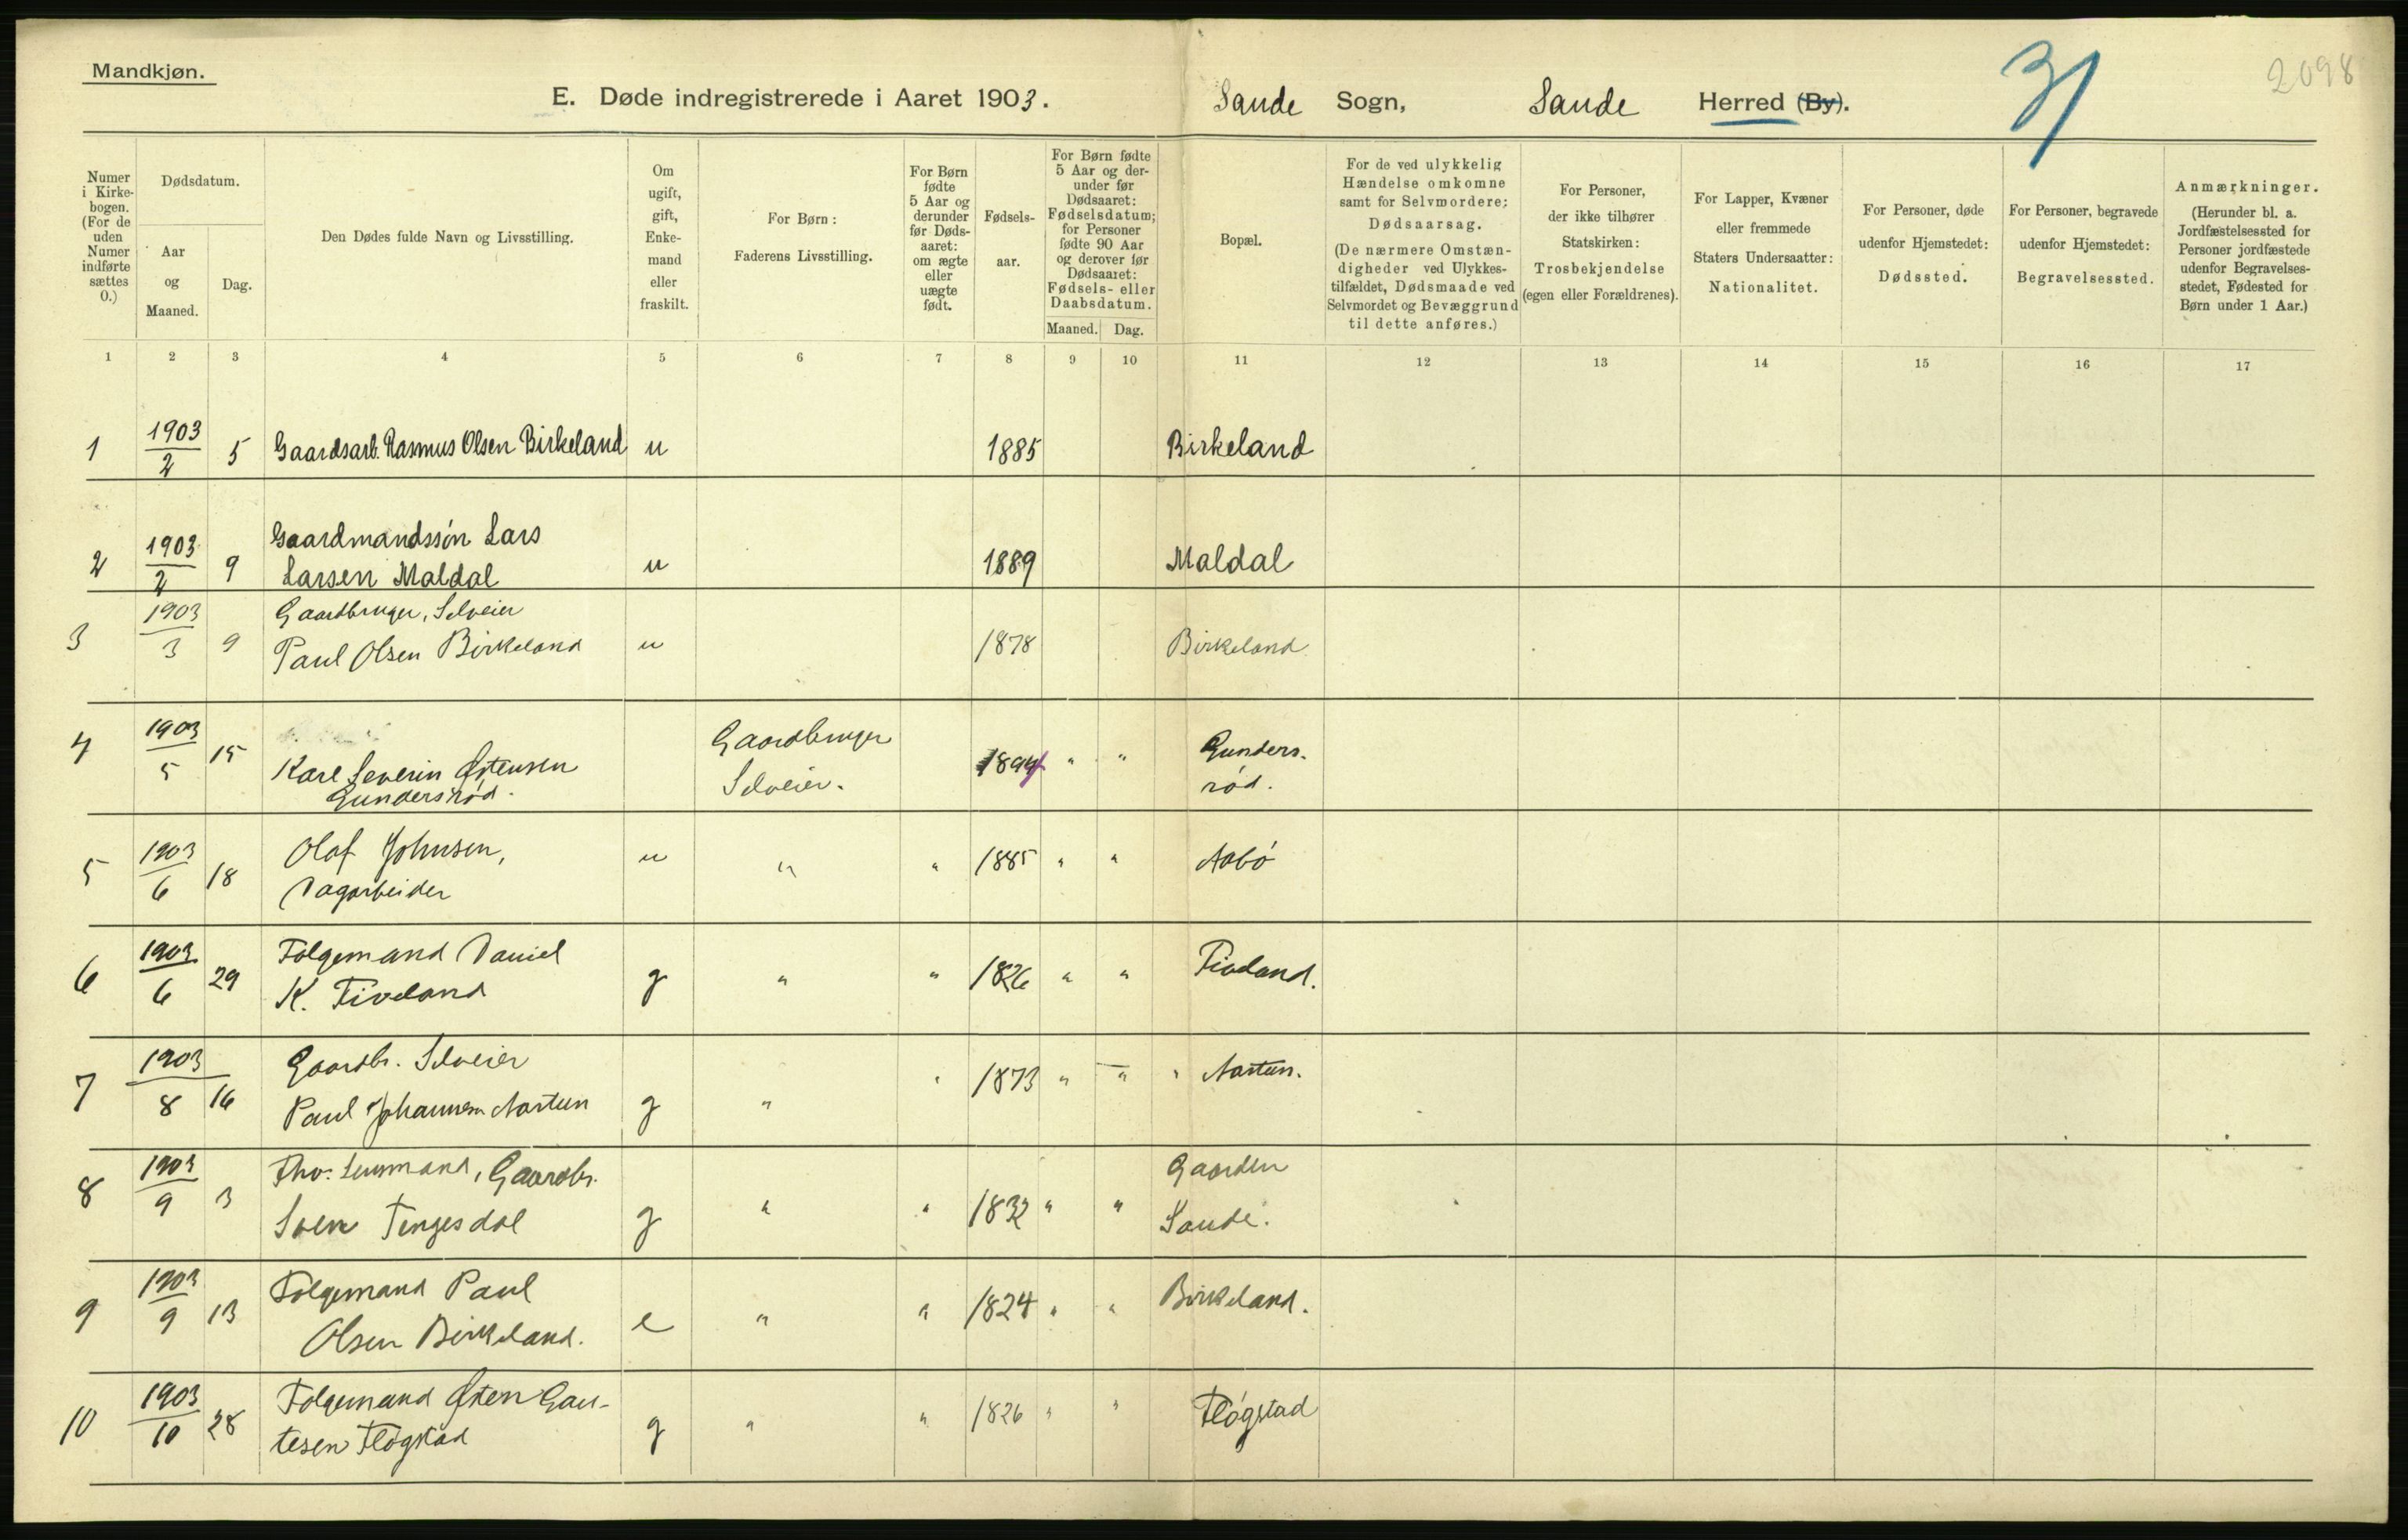 Mandkjøn.
E. Døde indregistrerede i Aaret 1903.
Sande Sogn, Sande Herred (By).
31
2098
Numer i Kirke-bogen. (For de uden Numer indførte sættes 0.)
Dødsdatum.
Aar og Maaned.
Dag.
Den Dødes fulde Navn og Livsstilling.
Om ugift, gift, Enke-mand eller fraskilt.
For Børn:
Faderens Livsstilling.
For Børn fødte 5 Aar og derunder før Døds-aaret: om ægte eller uægte født.
Fødsels-aar.
For Børn fødte 5 Aar og der-under før Dødsaaret: Fødselsdatum; for Personer fødte 90 Aar og derover før Dødsaaret: Fødsels- eller Daabsdatum.
Maaned. Dag.
Bopæl.
For de ved ulykkelig Hændelse omkomne samt for Selvmordere; Dødsaarsag.
(De nærmere Omstæn-digheder ved Ulykkes-tilfældet, Dødsmaade ved Selvmordet og Bevæggrund til dette anføres.)
For Personer, der ikke tilhører Statskirken:
Trosbekjendelse (egen eller Forældrenes).
For Lapper, Kvæner eller fremmede Staters Undersaatter:
Nationalitet.
For Personer, døde udenfor Hjemstedet:
Dødssted.
For Personer, begravede udenfor Hjemstedet:
Begravelsessted.
Anmærkninger.
(Herunder bl. a. Jordfæstelsessted for Personer jordfæstede udenfor Begravelses-stedet, Fødested for Børn under 1 Aar.)
1 2 3 4 5 6 7 8 9 10 11 12 13 14 15 16 17
1 1903/2 5 Gaardsarb. Rasmus Olsen Birkeland u 1885 Birkeland
2 1903/2 9 Gaardmandssön Lars
Larsen Maldal u 1889 Maldal
3 1903/3 9 Gaardbruger, Selveier
Paul Olsen Birkeland u 1878 Birkeland
4 1903/5 15 Karl Severin Østensen
Gundersröd. Gaardbruger
Selveier. 1894 " " Gunders.
röd.
5 1903/6 18 Olaf Johnsen,
Dagarbeider u " " 1885 " " Aabö
6 1903/6 29 Folgemand Daniel
K. Tiveland g " " 1826 " " Tiveland.
7 1903/8 16 Gaardbr. Selveier
Paul Johannesen Aartun g " " 1873 " " " Aartun.
8 1903/9 3 Fhv. Lensmand, Gaardbr.
Sven Tengesdal g " " 1832 " " Gaarden
Sande.
9 1903/9 13 Folgemand Paul
Olsen Birkeland. e " " 1824 " " Birkeland.
10 1903/10 28 Folgemand Østen Gau-
tesen Flögstad g " " 1826 " " Flögstad